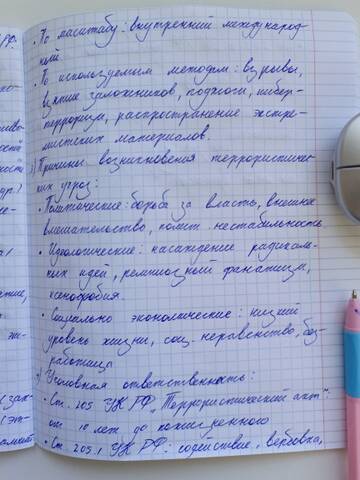 • По масштабу: внутренний международ
ный
• По используемым методам: взрывы,
взятие заложников, поджоги, кибер-
терроризм, распространение экстре-
мистских материалов.
Причины возникновения террористиче-
ких угроз:
• Политические: борьба за власть, внешнее
вмешательство, полит. нестабильность
• Идеологические: насаждение радикаль-
ных идей, религиозный фанатизм,
ксенофобия.
• Социально экономические: низкий
уровень жизни, соц. неравенство, без-
работица
Уголовная ответственность:
• Ст. 205 УК РФ "Террористический акт":
от 10 лет до пожизненного
• Ст. 205.1 УК РФ: содействие, вербовка,